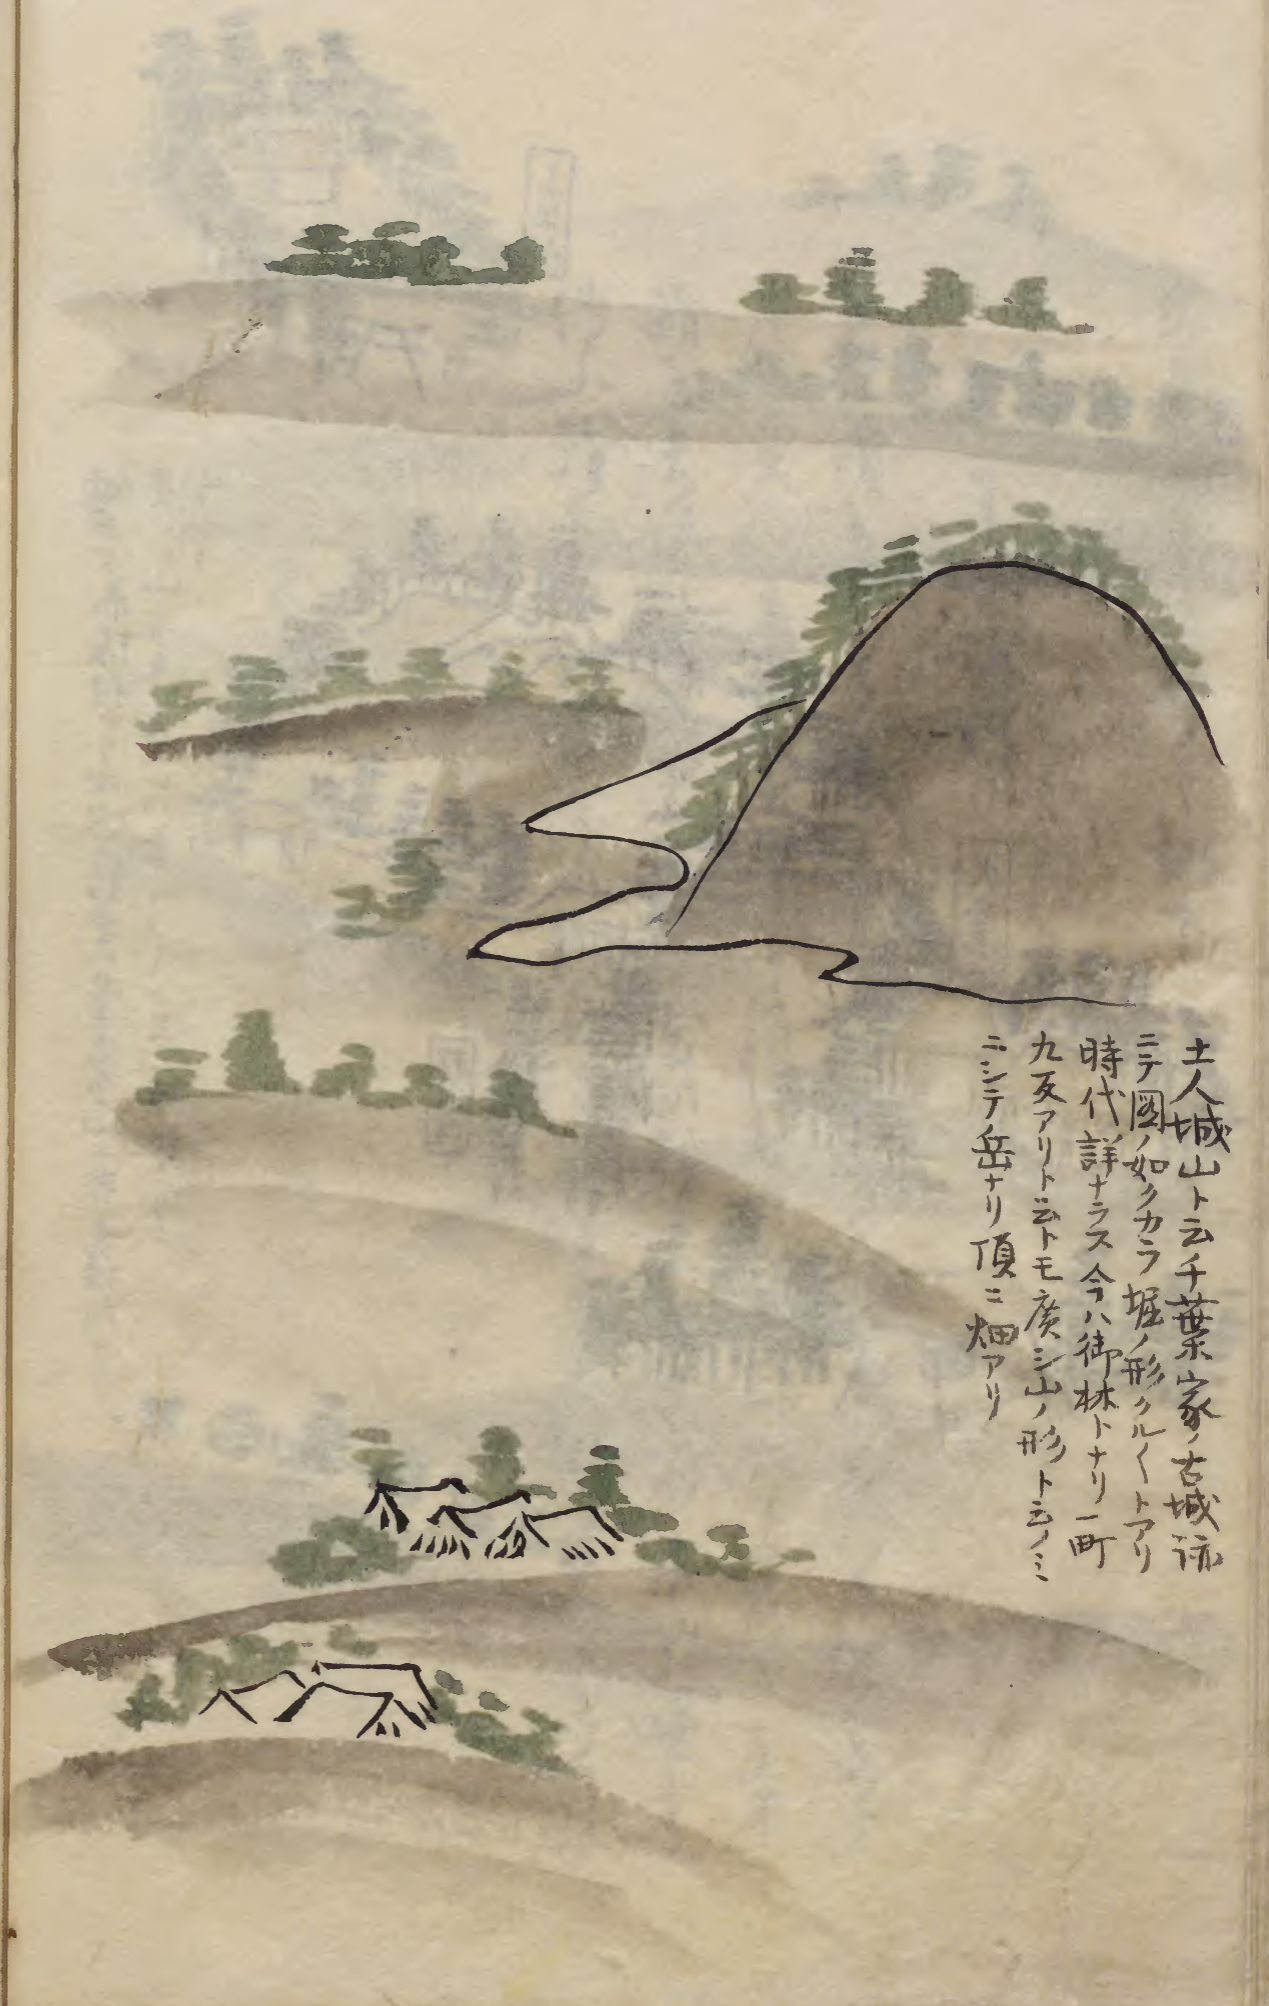 土人城山ト云千葉家ノ古城跡
ニテ圖ノ如クカラ堀ノ形クル〱トアリ
時代詳ナラス今ハ御林トナリ一町
九反アリト云トモ廣シ山ノ形ト云ノミ
ニシテ岳ナリ頂ニ畑アリ